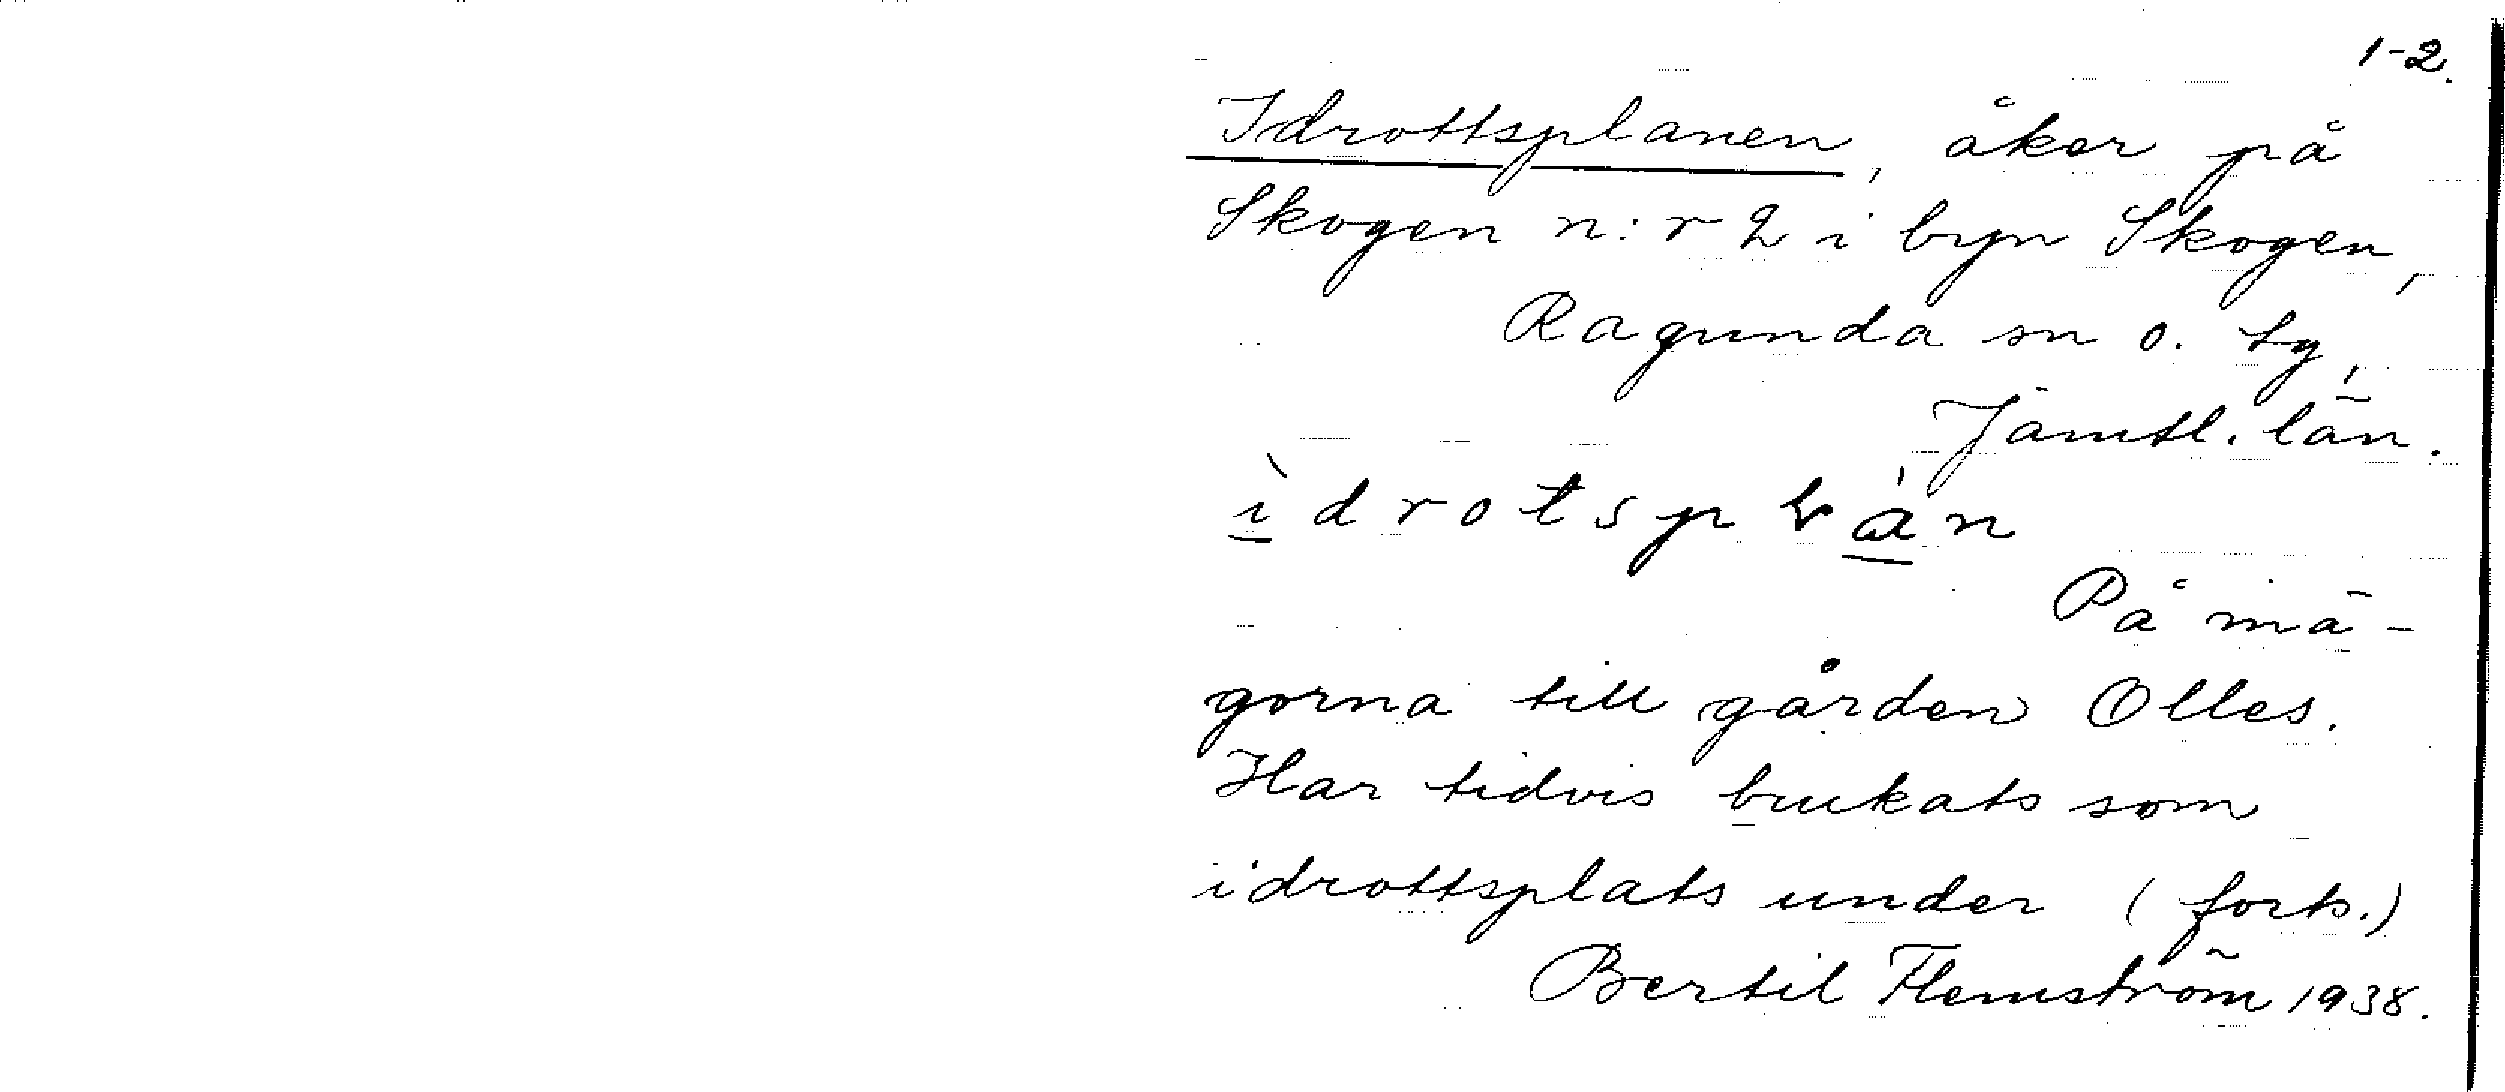 1-2.
Idrottsplanen, åker på
Skogen n:r 2 i byn Skogen,
Ragunda sn o. tg,
Jämtl. län.
På mä-
gorna till gården Olles.
Har tidvis brukats som
idrottsplats under (forts.)
Bertil Flemström 1938.